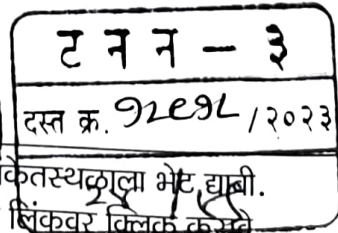 ट न न - ३
दस्त क्र. १८९१८ / २०२३
केतस्थळाला भेट द्यावी.
लिंकवर क्लिक करावे